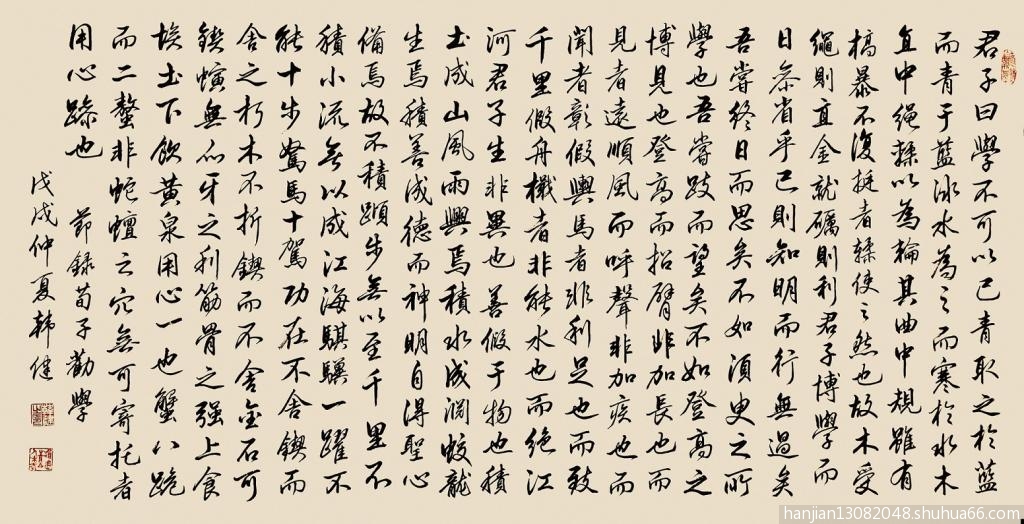 君子曰學不可以已青取之於藍
而青于藍冰水為之而寒於水木
直中绳輮以為輪其曲中規雖有
槁暴不復挺者輮使之然也故木受
繩則直金就礪則利君子博學而
日叅省乎己則知明而行無過矣
吾嘗終日而思矣不如須臾之所
學也吾嘗跂而望矣不如登高之
博見也登高而招臂非加長也而
見者遠順風而呼聲非加疾也而
聞者彰假輿馬者非利足也而致
千里假舟檝者非能水也而绝江
河君子生非異也善假于物也積
土成山風雨興焉積水成淵蛟龍
生焉積善成德而神明自得聖心
備焉故不積蹞步無以至千里不
積小流無以成江海騏驥一躍不
能十步駑馬十駕功在不舍鍥而
舍之朽木不折鍥而不舍金石可
鍥螾無爪牙之利筋骨之强上食
埃土下飲黄泉用心一也蟹八跪
而二螯非蛇蟺之穴無可寄托者
用心躁也 節録荀子勸學
戊戌仲夏韩健
hanjian13082048.shuhua66.com